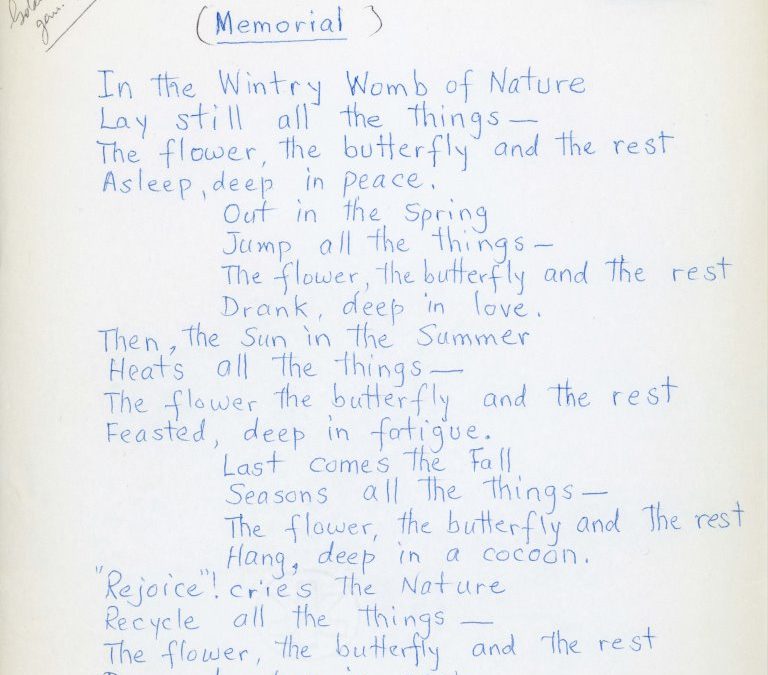 (Memorial)
In the Wintry Womb of Nature
Lay still all the things—
The flower, the butterfly and the rest
Asleep, deep in peace.
Out in the Spring
Jump all the things—
The flower, the butterfly and the rest
Drank, deep in love.
Then, the Sun in the Summer
Heats all the things—
The flower the butterfly and the rest
Feasted, deep in fatigue.
Last comes the Fall
Seasons all the things—
The flower, the butterfly and the rest
Hang, deep in a cocoon.
"Rejoice"! cries the Nature
Recycle all the things—
The flower, the butterfly and the rest